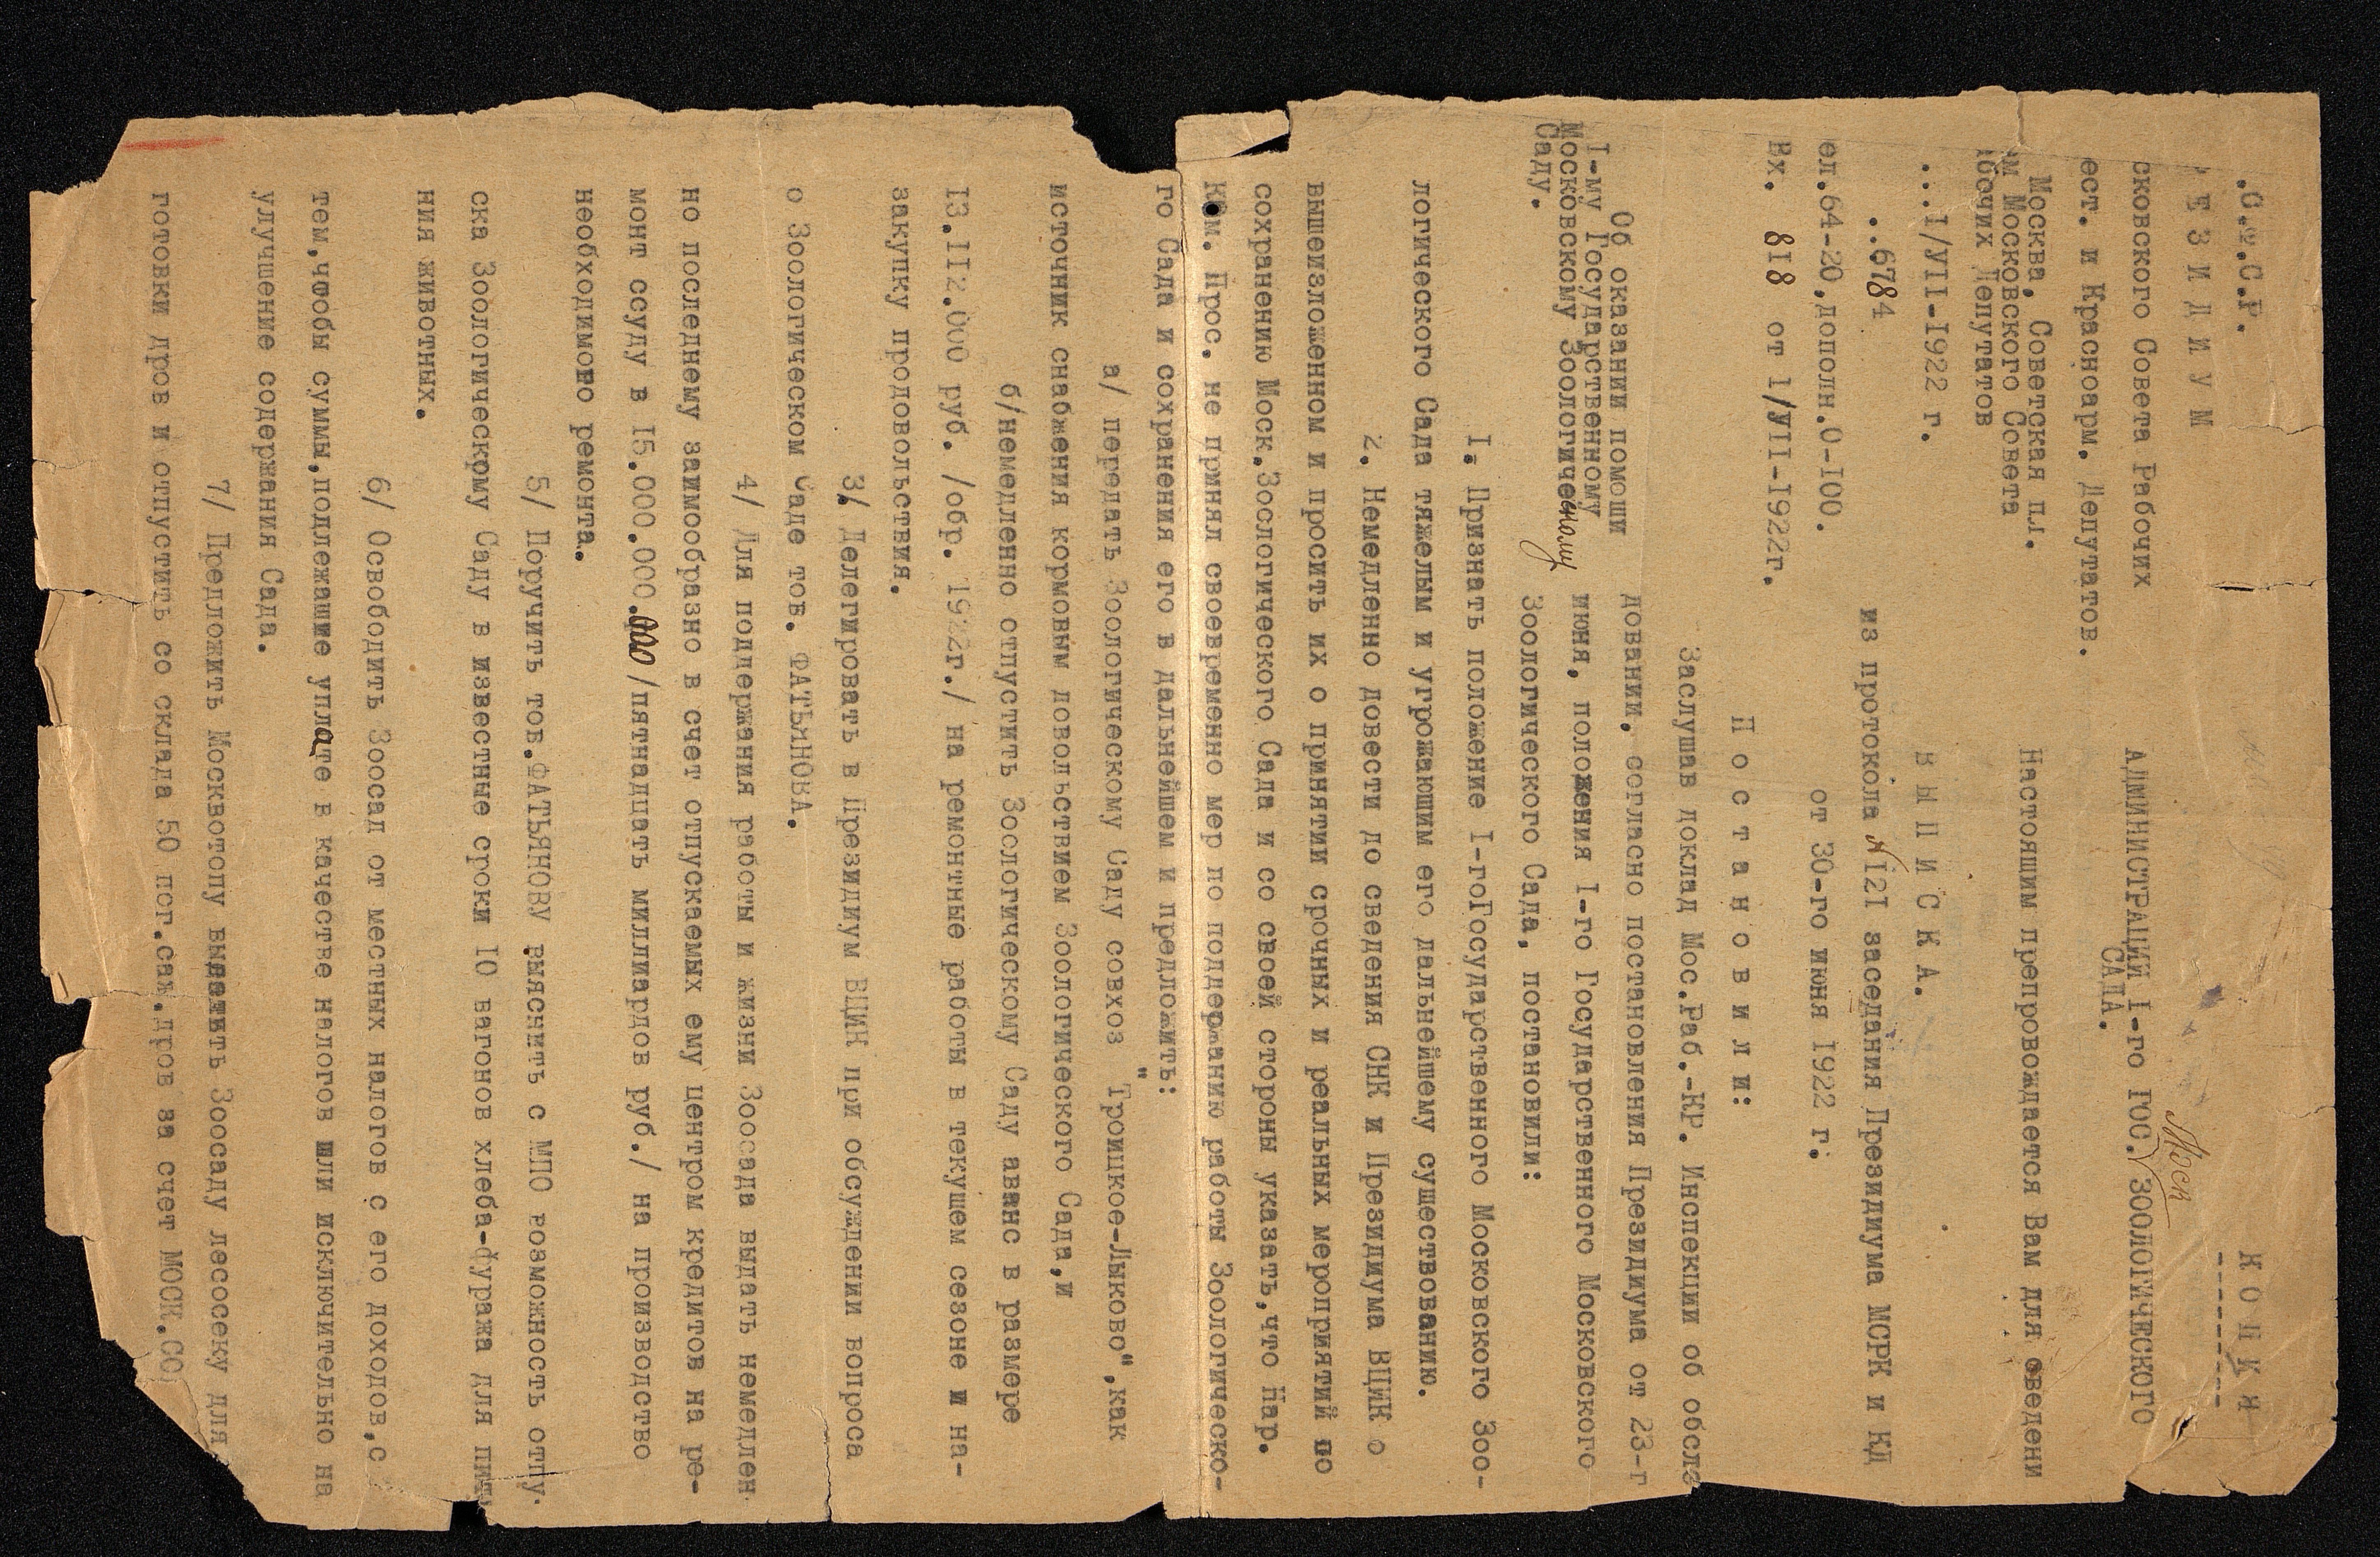 .С.Ф.С.Р.
К О П И Я
---------
ЕЗИДИУМ
сковского Совета Рабочих
ест. и Красноарм. Депутатов.
Москва, Советская пл.
м Московского Совета
бочих Депутатов
...I/УII-I922 г.
..6784
ел.64-20,дополн.0-I00.
Вх. 8I8 от I/УII-I922г.
Моск
АДМИНИСТРАЦИИ I-го ГОС. ЗООЛОГИЧЕСКОГО
САДА.
Настоящим препровождается Вам для сведени
В Ы П И С К А.
из протокола № I2I заседания Президиума МСРК и КД
от 30-го июня I922 г.
П о с т а н о в и л и:
Об оказании помощи
I-му Государственному
Московскому Зоологическому
Саду.
Заслушав доклад Мос.Раб.-КР. Инспекции об обсле
довании, согласно постановления Президиума от 23-г
июня, положения I-го Государственного Московского
Зоологического Сада, постановили:
I. Признать положение I-гоГосударственного Московского Зоо-
логического Сада тяжелым и угрожающим его дальнейшему существованию.
2. Немедленно довести до сведения СНК и Президиума ВЦИК о
вышеизложенном и просить их о принятии срочных и реальных мероприятий по
сохранению Моск.Зоологического Сада и со своей стороны указать,что Нар.
Ком. Прос. не принял своевременно мер по поддержанию работы Зоологическо-
го Сада и сохранения его в дальнейшем и предложить:
а/ передать Зоологическому Саду совхоз "Троицкое-Лыково",как
источник снабжения кормовым довольствием Зоологического Сада,и
б/немедленно отпустить Зоологическому Саду аванс в размере
I3.II2.000 руб. /обр. I922г./ на ремонтные работы в текущем сезоне и на-
закупку продовольствия.
3/ Делегировать в Президиум ВЦИК при обсуждении вопроса
о Зоологическом Саде тов. ФАТЬЯНОВА.
4/ Для поддержания работы и жизни Зоосада выдать немедлен-
но последнему заимообразно в счет отпускаемых ему центром кредитов на ре-
монт ссуду в I5.000.000.000 /пятнадцать миллиардов руб./ на производство
необходимого ремонта.
5/ Поручить тов.ФАТЬЯНОВУ выяснить с МПО возможность отпу-
ска Зоологическому Саду в известные сроки I0 вагонов хлеба-фуража для пит
ния животных.
6/ Освободить Зоосад от местных налогов с его доходов,с
тем,чтобы суммы,подлежащие уплате в качестве налогов шли исключительно на
улучшение содержания Сада.
7/ Предложить Москвотопу выдать Зоосаду лесосеку для
готовки дров и отпустить со склада 50 пог.саж.дров за счет МОСК.СО